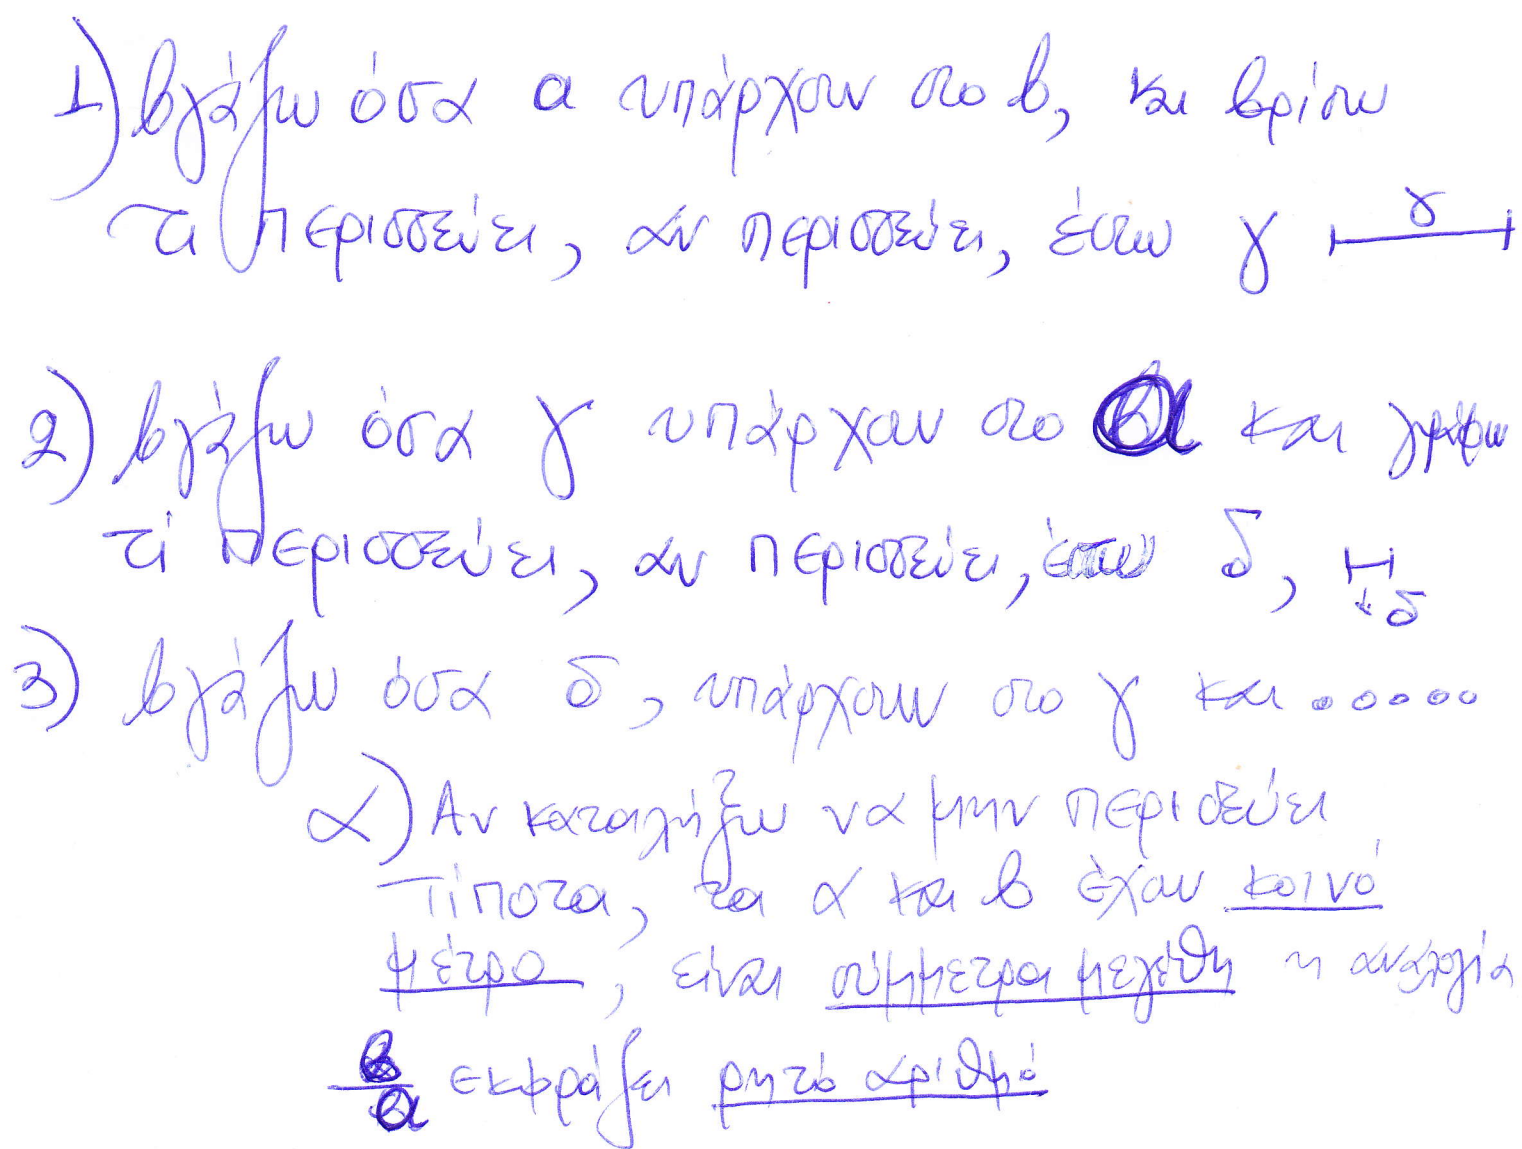 1) βγάζω όσα α υπάρχουν στο β, και βρίσκω
τι περισσεύει, αν περισσεύει, έστω γ γ
2) βγάζω όσα γ υπάρχουν στο α και γράφω
τί περισσεύει, αν περισσεύει, έστω δ, δ
3) βγάζω όσα δ, υπάρχουν στο γ και .....
α) Αν καταλήξω να μην περισεύει
τίποτα, τα α και β έχουν κοινό
μέτρο, είναι σύμμετρα μεγέθη η αναλογία
β/α εκφράζει ρητό αριθμό